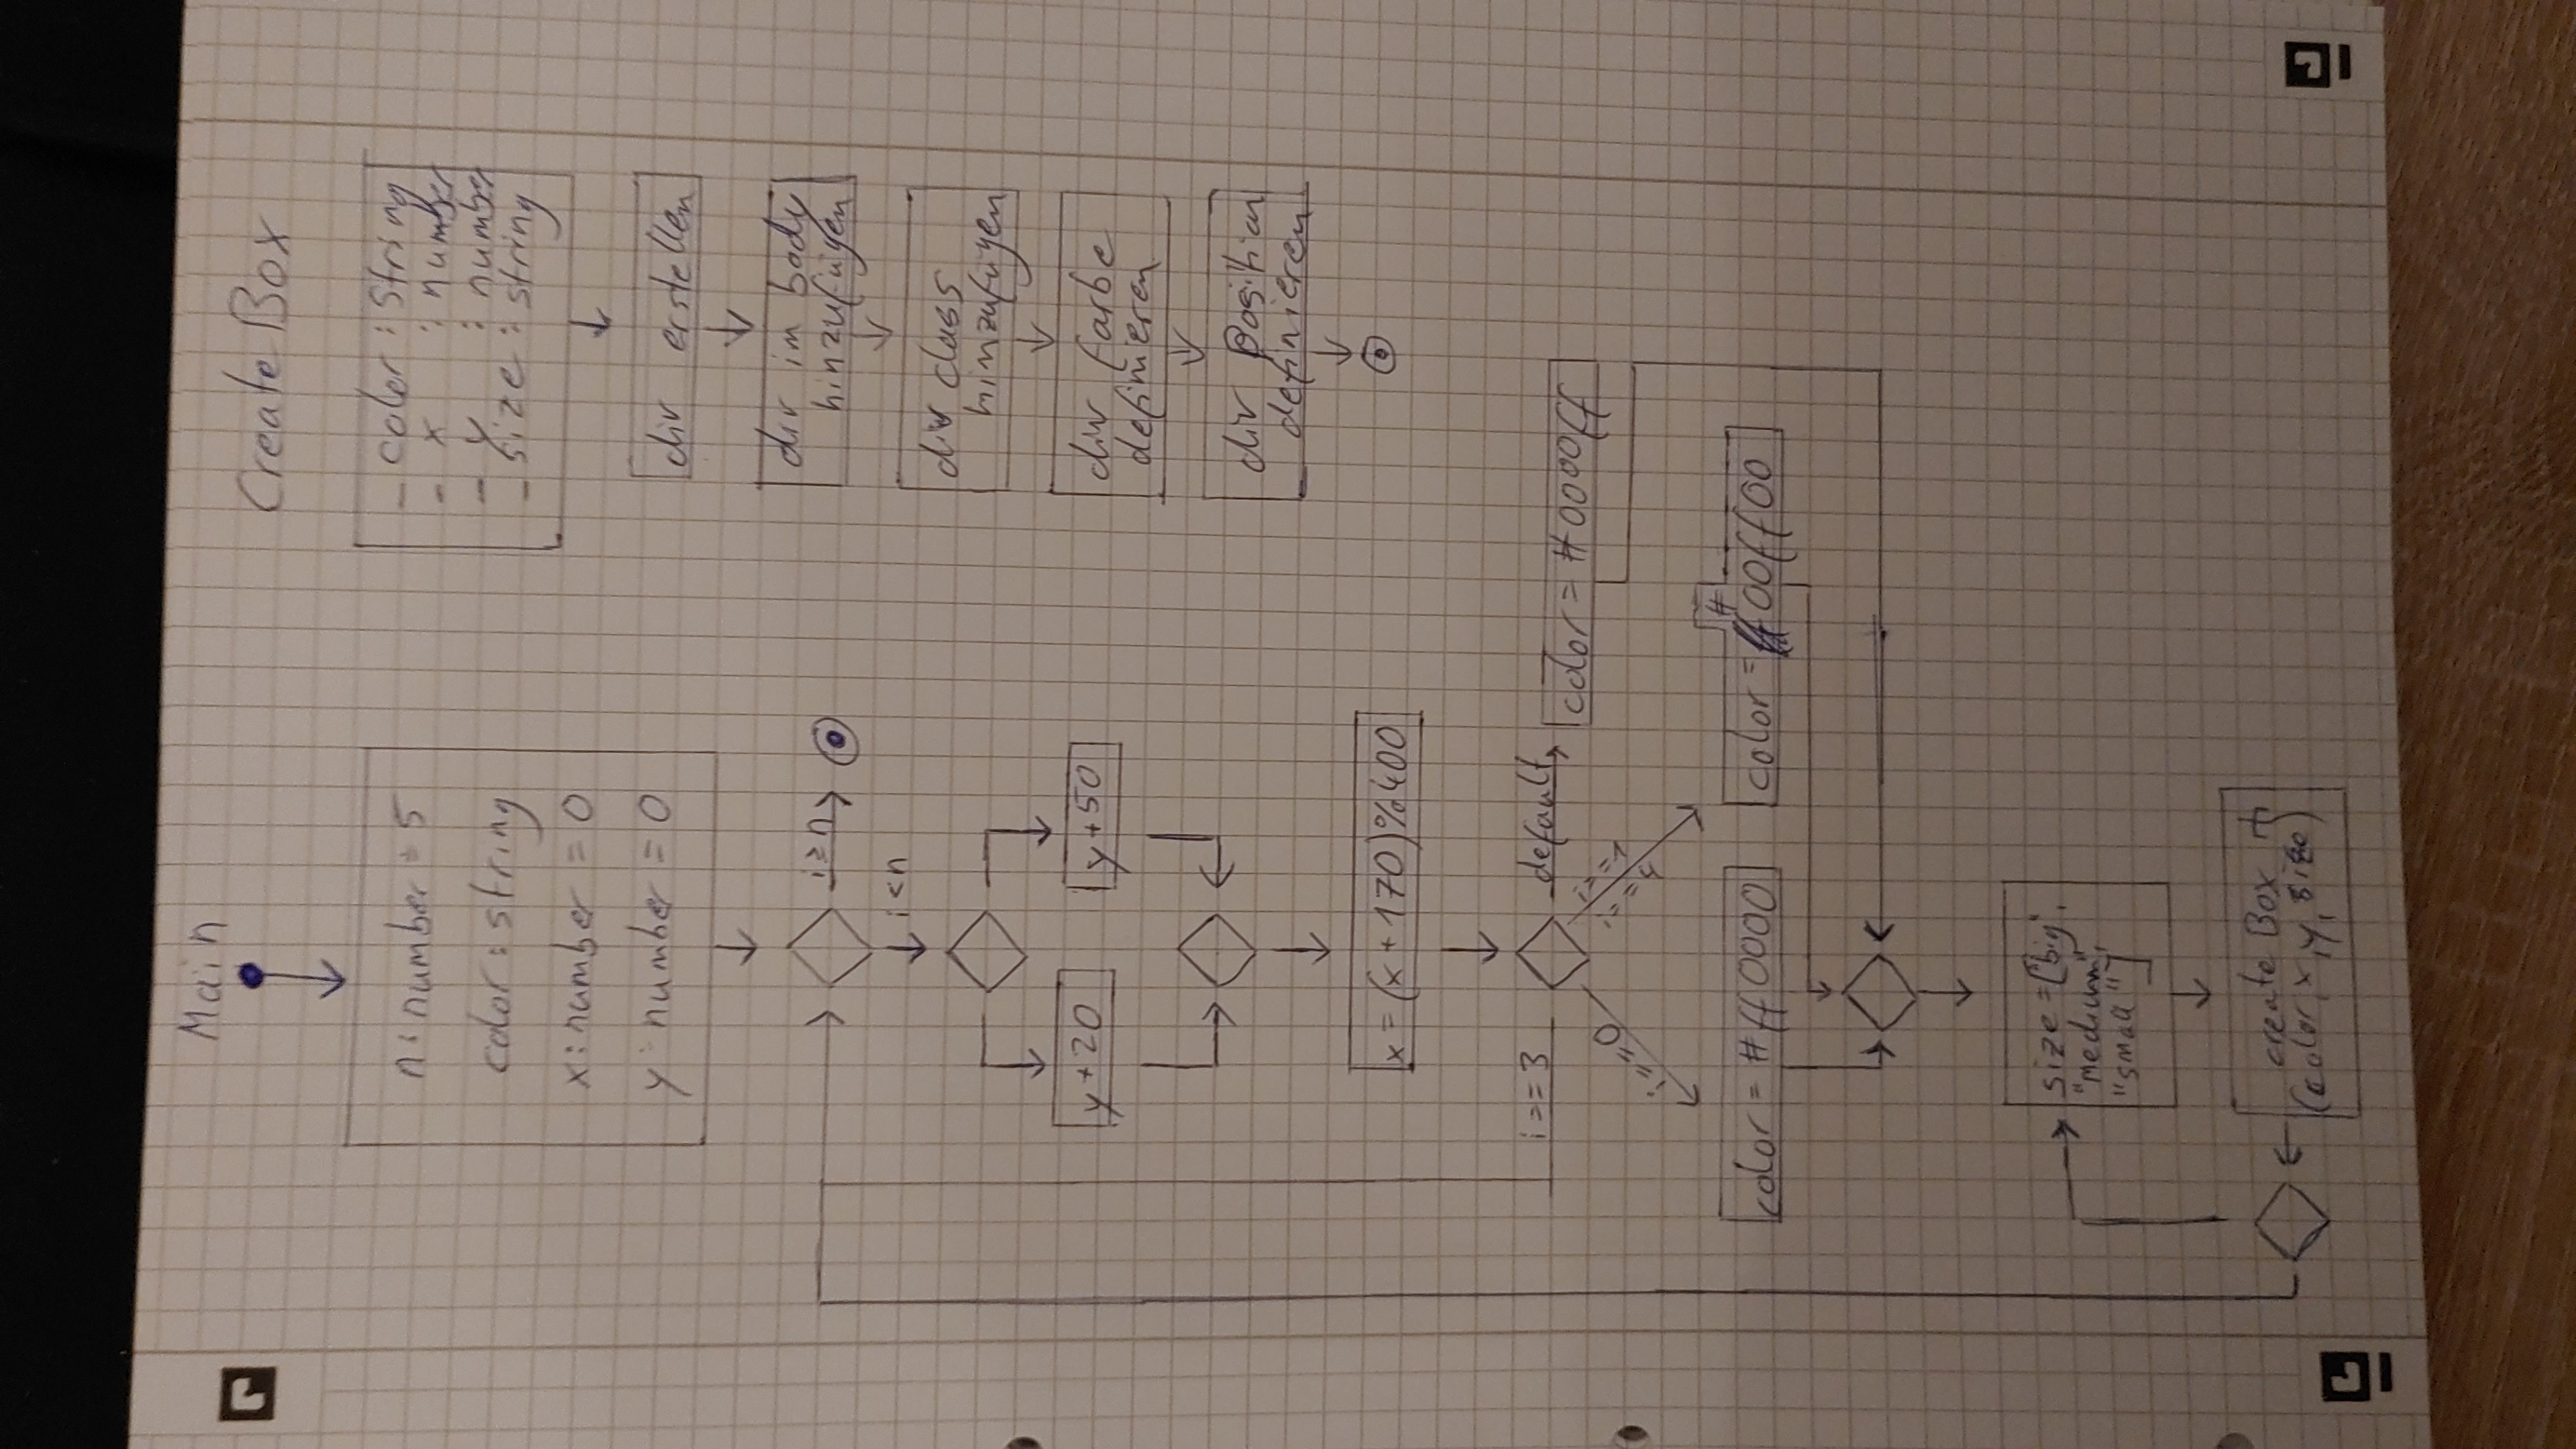 Main
n: number = 5
color: string
x: number = 0
y: number = 0
i≥n
i<n
y+20
y+50
x=(x+170)%400
i==3
default
color= #0000ff
i==0
i==1
i==4
color= #ff0000
#
color= 00ff00
size=["big",
"medium",
"small"]
create Box
(color,x,y,size)
Create Box
- color : String
- x : number
- y : number
- size : string
div erstellen
div im body
hinzufügen
div class
hinzufügen
div farbe
definieren
div Position
definieren